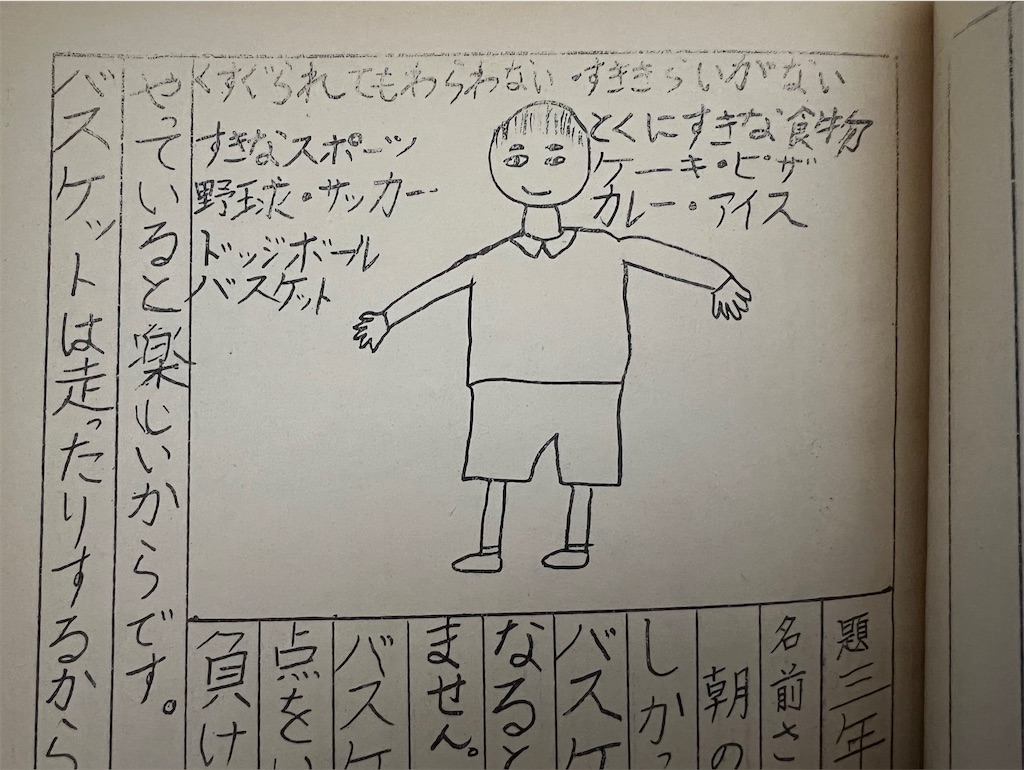 くすぐられてもわらわない・すききらいがない
すきなスポーツ
野球・サッカー
ドッジボール
バスケット
とくにすきな食物
ケーキ・ピザ
カレー・アイス
題三年
名前さ
朝の
しかっ
バスケ
なると
ません。
バスケ
点をい
負け
やっていると楽しいからです。
バスケットは走ったりするから